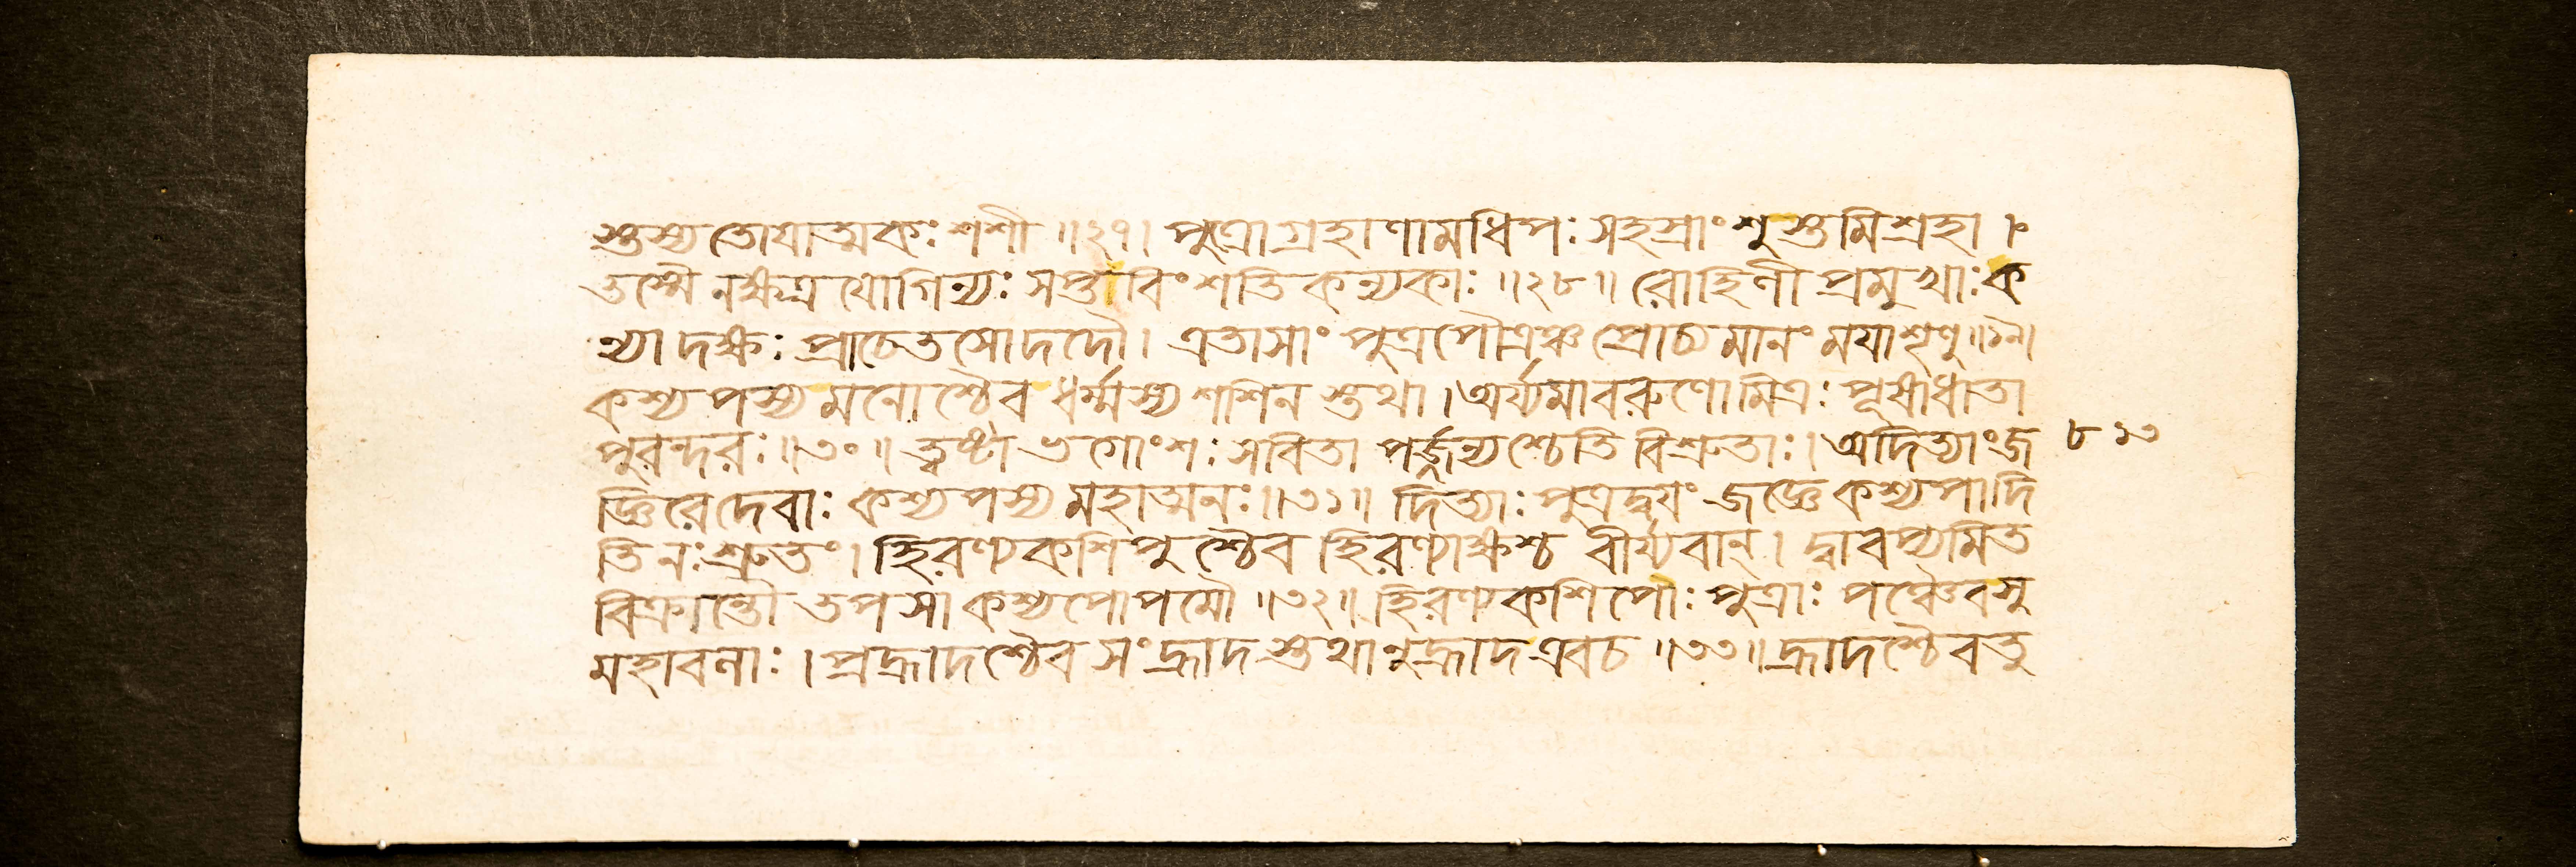 স্তুস্য তোযাত্মকঃ শশী ॥২৭। পুত্রো গ্রহাণামধিপঃ সহস্রাংশুস্তমিশ্রহা ।
তস্মৈ নক্ষত্র যোগিন্যঃ সপ্তাবিংশতি কন্যকাঃ ॥২৮॥ রোহিণী প্রমুখাঃ ক
ন্যা দক্ষঃ প্রাচেতসোদদৌ। এতাসাং পুত্রপৌত্রঞ্চ প্রোচ্যমানং মযা শৃণু ॥২৯।
কশ্যপস্য মনোশ্চৈব ধর্ম্মস্য শশিন স্তুথা। অর্য্যমা বরুণো মিত্রঃ পূষা ধাতা
পুরন্দরঃ ॥৩০॥ ত্বষ্টা ভগোংশঃ সবিতা পর্জ্জন্যশ্চেতি বিশ্রুতাঃ। অদিত্যাং জ ৮১৩
জ্ঞিরে দেবাঃ কশ্যপস্য মহাত্মনঃ ॥৩১॥ দিত্যাঃ পুত্রদ্বযং জজ্ঞে কশ্যপাদি
তি নঃ শ্রুতং। হিরণ্যকশিপুশ্চৈব হিরণ্যাক্ষশ্চ বীর্য্যবান্। দ্বাবপ্যমিত
বিক্রান্তৌ তপসা কশ্যপোপমৌ ॥৩২॥ হিরণ্যকশিপোঃ পুত্রাঃ পঞ্চৈব সু
মহাবনাঃ । প্রহ্রাদশ্চৈব সংহ্রাদ স্তুথানুহ্রাদ এবচ ॥৩৩॥ হ্রাদশ্চৈব তু